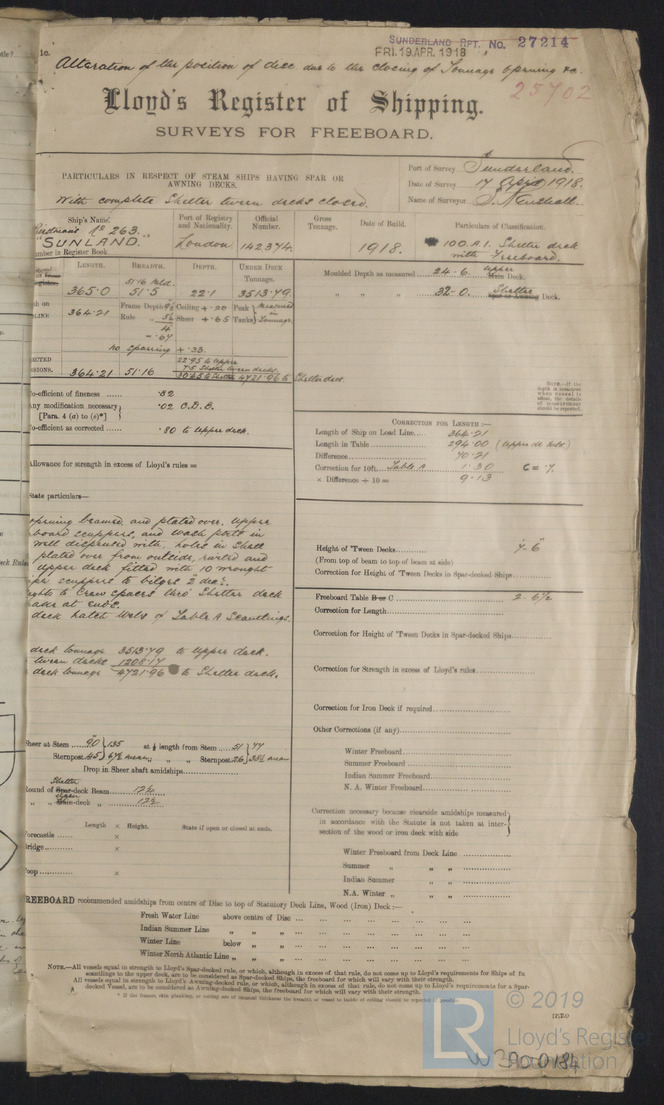 SUNDERLAND RPT. No. 27214
FRI. 19 APR. 1918
Alteration of the position of disc due to the closing of Tonnage opening &c.
25702
Lloyd's Register of Shipping.
SURVEYS FOR FREEBOARD.
PARTICULARS IN RESPECT OF STEAM SHIPS HAVING SPAR OR
AWNING DECKS.
With complete Shelter tween decks closed.
Port of Survey Sunderland.
Date of Survey 17 April 1918.
Name of Surveyor
Ship's Name.
No 263.
"SUNLAND."
umber in Register Book
Port of Registry
and Nationality.
London
Official
Number.
142374.
Gross
Tonnage.
Date of Build.
1918.
Particulars of Classification.
100.A.1. Shelter deck
with Freeboard.
LENGTH. BREADTH. DEPTH. UNDER DECK
Tonnage.
51.16 Mld.
365.0 51.5 22.1 3513.79
Moulded Depth as measured 24-6. Upper Main Deck.
" " " 32-0. Shelter Deck.
364.21
Frame Depth
Rule
Ceiling + .20
Sheer + .65
Peak
Tanks
Measured
in
Tonnage
no sparring + .33
22.95 to upper
7.5 Shelter tween decks.
364.21 51.16 4721.96 to Shelter deck
o-efficient of fineness .82
Any modification necessary
[Para. 4 (a) to (e)*]
.02 C.D.B.
o-efficient as corrected .80 to upper deck.
Allowance for strength in excess of Lloyd's rules =
State particulars—
opening beamed, and plated over. Upper
board scuppers, and wash ports in
well dispensed with, holes in Shell
plated over from outside, riveted and
upper deck fitted with 10 wrought
scuppers to bilges 2 dia.
to crew spaces thro' Shelter deck
at ends.
deck hatch Webs of Table A Scantlings.
deck tonnage 3513.79 to upper deck.
tween decks 1208.17
deck tonnage 4721.96 to Shelter deck.
NOTE.—If the
CORRECTION FOR LENGTH :—
Length of Ship on Load Line 364.21
Length in Table 294.00 (Upper dk)
Difference 70.21
Correction for 10ft. Table A 1.30 C = .7.
× Difference ÷ 10 = 9.13
Height of 'Tween Decks 7-6"
(From top of beam to top of beam at side)
Correction for Height of 'Tween Decks in Spar-decked Ships
Freeboard Table B or C 2-6½
Correction for Length
Correction for Height of 'Tween Decks in Spar-decked Ships
Correction for Strength in excess of Lloyd's rules
Correction for Iron Deck if required
Other Corrections (if any)
Winter Freeboard
Summer Freeboard
Indian Summer Freeboard
N. A. Winter Freeboard
Correction necessary because clearside amidships measured
in accordance with the Statute is not taken at inter-
section of the wood or iron deck with side
Winter Freeboard from Deck Line
Summer " " "
Indian Summer " "
N.A. Winter " " "
Sheer at Stem 90 135 at ⅛ length from Stem 51 77
Sternpost 45 67½ mean " " Sternpost 26 38½ mean
Drop in Sheer abaft amidships
Round of Shelter Spar-deck Beam 12½
" " Upper Main-deck " 12½
Length × Height. State if open or closed at ends.
Forecastle ×
ridge ×
oop ×
REEBOARD recommended amidships from centre of Disc to top of Statutory Deck Line, Wood (Iron) Deck :—
Fresh Water Line above centre of Disc
Indian Summer Line " " "
Winter Line below " "
Winter North Atlantic Line " " "
NOTE.—All vessels equal in strength to Lloyd's Spar-decked rule, or which, although in excess of that rule, do not come up to Lloyd's requirements for Ships of
scantlings to the upper deck, are to be considered as Spar-decked Ships, the freeboard for which will vary with their strength.
All vessels equal in strength to Lloyd's Awning-decked rule, or which, although in excess of that rule, do not come up to Lloyd's requirements for a Spar-
decked Vessel, are to be considered as Awning-decked Ships, the freeboard for which will vary with their strength.
© 2019
Lloyd's Register
Foundation
LR
W390-0184